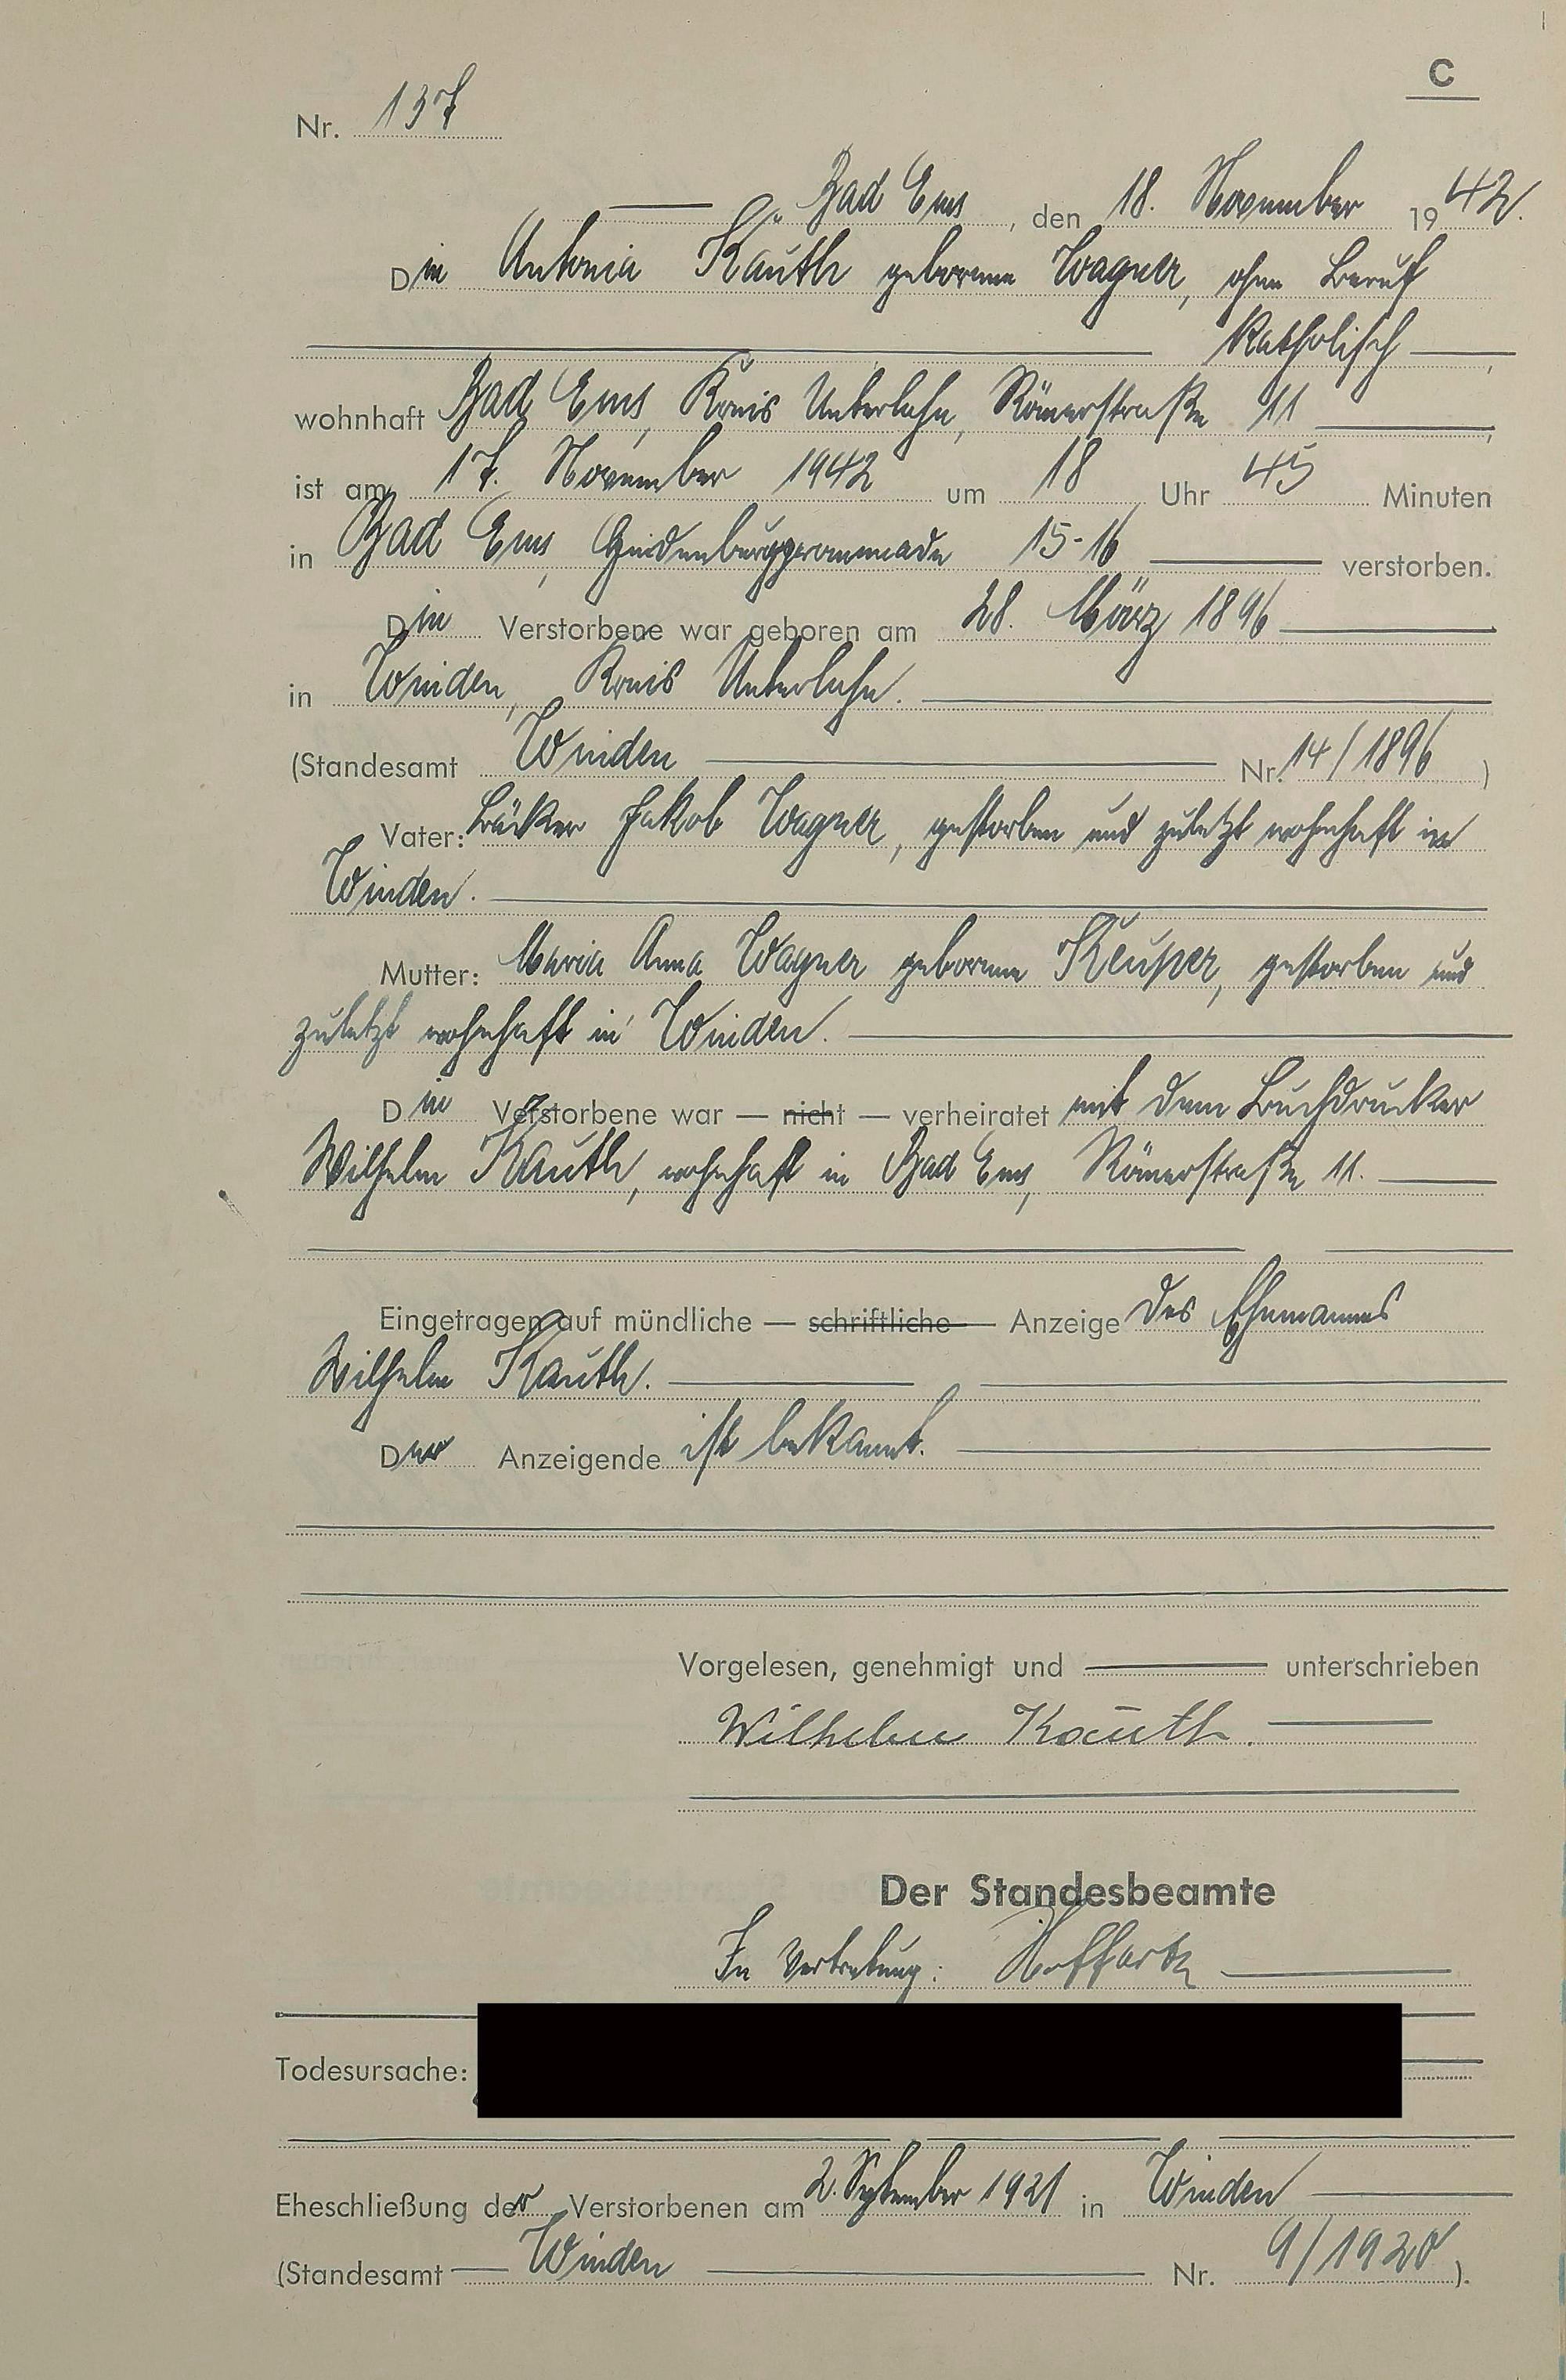 C
Nr. 137
Bad Ems, den 18. November 1942.
Die Antonia Kauth geborene Wagner, ohne Beruf
katholisch,
wohnhaft Bad Ems, Kreis Unterlahn, Römerstraße 11,
ist am 17. November 1942 um 18 Uhr 45 Minuten
in Bad Ems, 15-16 verstorben.
Die Verstorbene war geboren am 28. März 1896
in Winden, Kreis Unterlahn.
(Standesamt Winden Nr. 14/1896)
Vater: Bäcker Jakob Wagner, gestorben und zuletzt wohnhaft in
Winden.
Mutter: Maria Anna Wagner geborene Keuper, gestorben und
zuletzt wohnhaft in Winden.
Die Verstorbene war — nicht — verheiratet mit dem Buchdrucker
Wilhelm Kauth, wohnhaft in Bad Ems, Römerstraße 11.
Eingetragen auf mündliche — schriftliche — Anzeige des Ehemannes
Wilhelm Kauth.
Der Anzeigende ist bekannt.
Vorgelesen, genehmigt und unterschrieben
Wilhelm Kauth.
Der Standesbeamte
In Vertretung:
Todesursache:
Eheschließung der Verstorbenen am 2. September 1921 in Winden
(Standesamt Winden Nr. 9/1920).